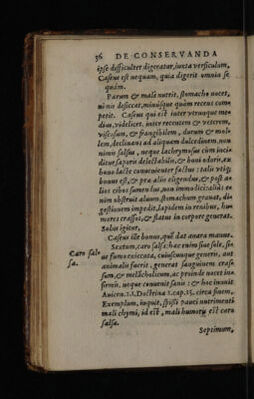 36 DE CONSERVANDA
ipse difficulter digeratur, iuxta versiculum,
Caseus est nequam, quia digerit omnia se
quàm.
Parum & male nutrit, stomacho nocet,
nimis desiccat, minúsque quàm recens com
petit. Caseus qui est inter vtrunque me-
dius, videlicet, inter recentem & veterem,
viscosum, & frangibilem, durum & mol-
lem, declinans ad aliquam dulcedinem, non
nimis salsus, neque lachrymosus cùm inci-
ditur, saporis delectabilis, & boni odoris, ex
bono lacte conuenienter factus: talis
bonus est, & præ aliis eligendus, & post a-
lios cibos sumendus, non immo
nim obstruit aluum, stomachum grauat, di-
gestionem impedit, lapidem in renibus, hu-
mores crassos, & flatus in corpore generat.
Solus igitur,
Caseus ille bonus, quē dat auara manus.
Caro sal Sextum, caro salsa: hæc enim siue sole, siu
sa. ue fumo exiccata, cuiuscunque generis, aut
animalis fuerit, generat sanguinem cras-
sum, & melācholicum, ac proinde nocet in-
firmis, neque conuenit sanis: & hoc innuit
Auicen. 2.1. Doctrina 2. cap. 15. circa finem,
Exemplum, inquit, spissi pauci nutrimenti
mali chymi, id est, mali humoris est caro
salsa.
Septimum,